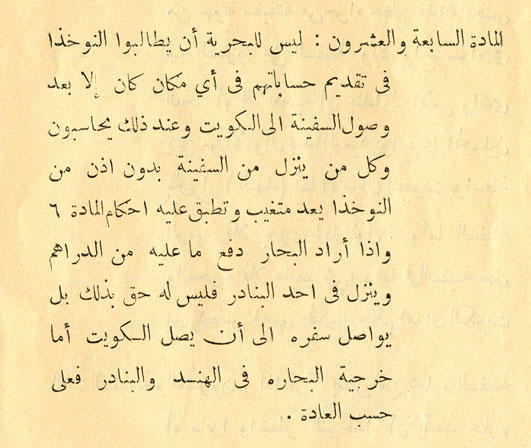 المادة السابعة والعشرون : ليس للبحرية أن يطالبوا النوخذا
فى تقديم حساباتهم فى أي مكان كان إلا بعد
وصول السفينة الى الكويت وعند ذلك يحاسبون
وكل من ينزل من السفينة بدون اذن من
النوخذا يعد متغيب وتطبق عليه احكام المادة ٦
واذا أراد البحار دفع ما عليه من الدراهم
وينزل فى احد البنادر فليس له حق بذلك بل
يواصل سفره الى أن يصل الكويت أما
خرجية البحاره فى الهند والبنادر فعلى
حسب العادة .